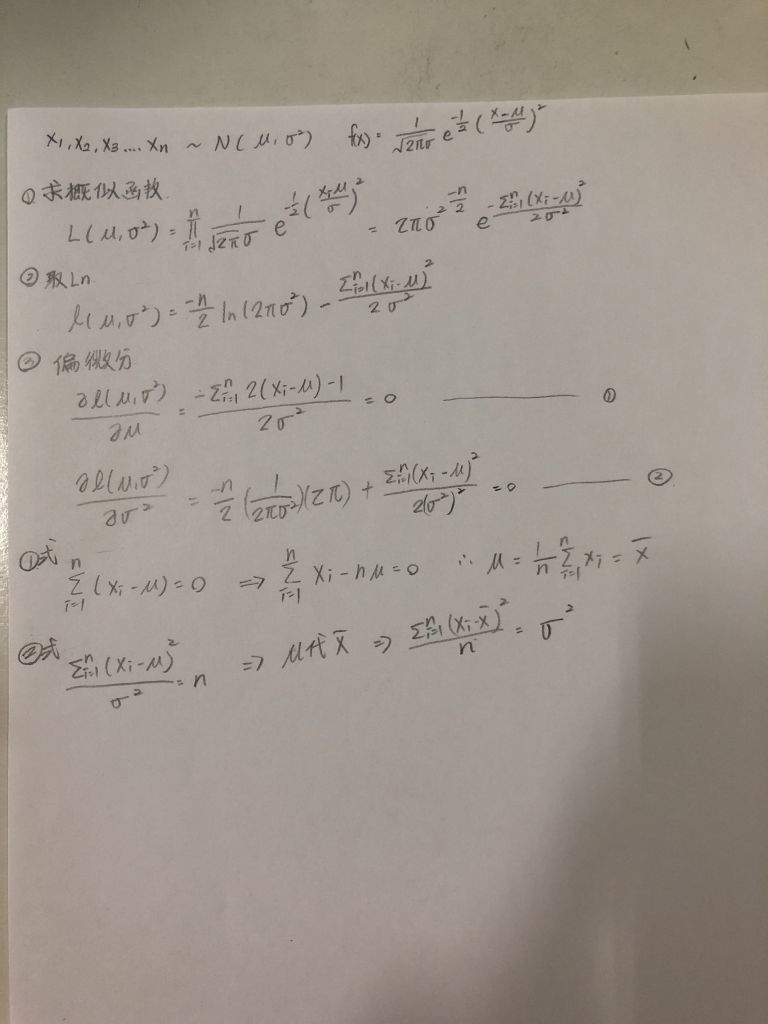 x₁, x₂, x₃ .... xₙ ~ N(μ, σ²) f(x) = 1/(√2π σ) e^(-1/2 ((x-μ)/σ)²)
① 求概似函数
L(μ, σ²) = ∏ᵢ₌₁ⁿ 1/(√2π σ) e^(-1/2 ((xᵢ-μ)/σ)²) = 2πσ²^(-n/2) e^(-Σᵢ₌₁ⁿ(xᵢ-μ)²/2σ²)
② 取Ln
l(μ, σ²) = -n/2 ln(2πσ²) - Σᵢ₌₁ⁿ(xᵢ-μ)²/2σ²
③ 偏微分
∂l(μ, σ²)/∂μ = -Σᵢ₌₁ⁿ 2(xᵢ-μ)-1/2σ² = 0 ——— ①
∂l(μ, σ²)/∂σ² = -n/2 (1/2πσ²)(2π) + Σᵢ₌₁ⁿ(xᵢ-μ)²/2(σ²)² = 0 ——— ②
①式 Σᵢ₌₁ⁿ (xᵢ-μ) = 0 ⇒ Σᵢ₌₁ⁿ xᵢ - nμ = 0 ∴ μ = 1/n Σᵢ₌₁ⁿ xᵢ = x̄
②式 Σᵢ₌₁ⁿ(xᵢ-μ)²/σ² = n ⇒ μ代x̄ ⇒ Σᵢ₌₁ⁿ(xᵢ-x̄)²/n = σ²